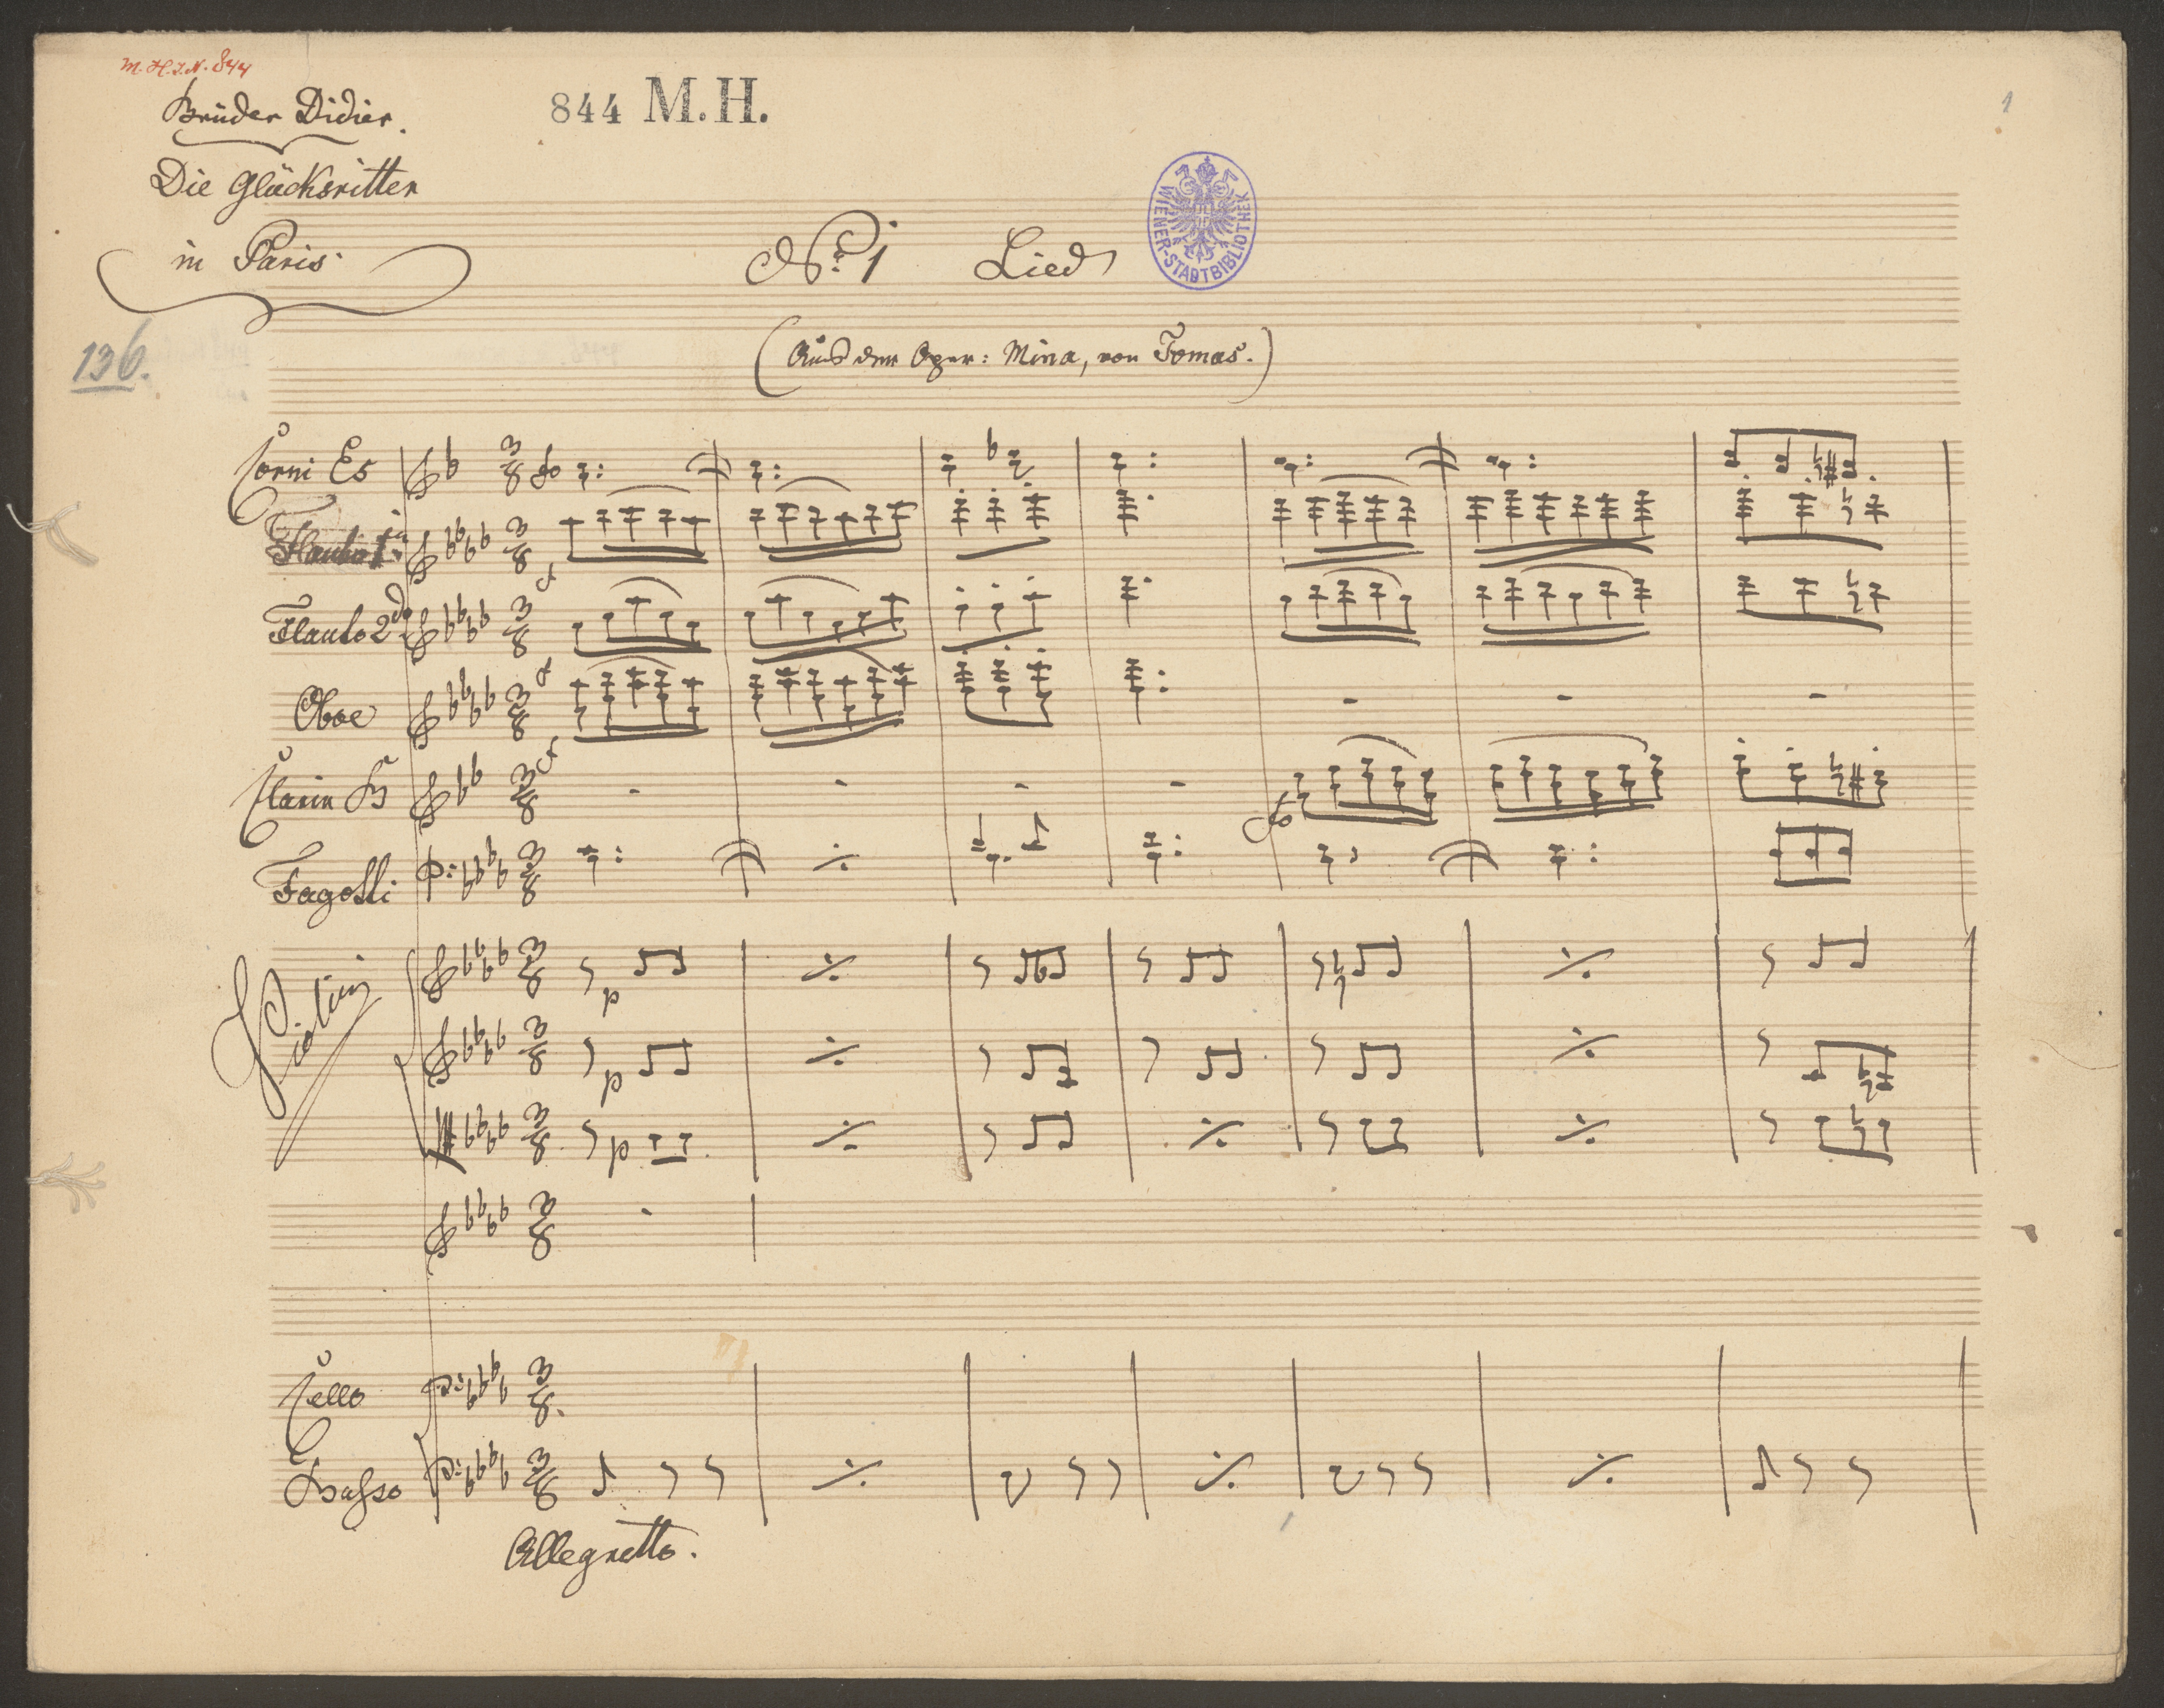 M. H. I. N. 844
Brüder Didier.
844 M. H.
1
Die Glücksritter
in Paris
No. 1 Lied
WIENER-STADTBIBLIOTHEK
136.
(Aus der Oper: Mina, von Tomas.)
Corni Es
Flauto 1mo
Flauto 2do
Oboe
Clarin B
Fagotti
Violini
p
p
p
Cello
Basso
Allegretto.